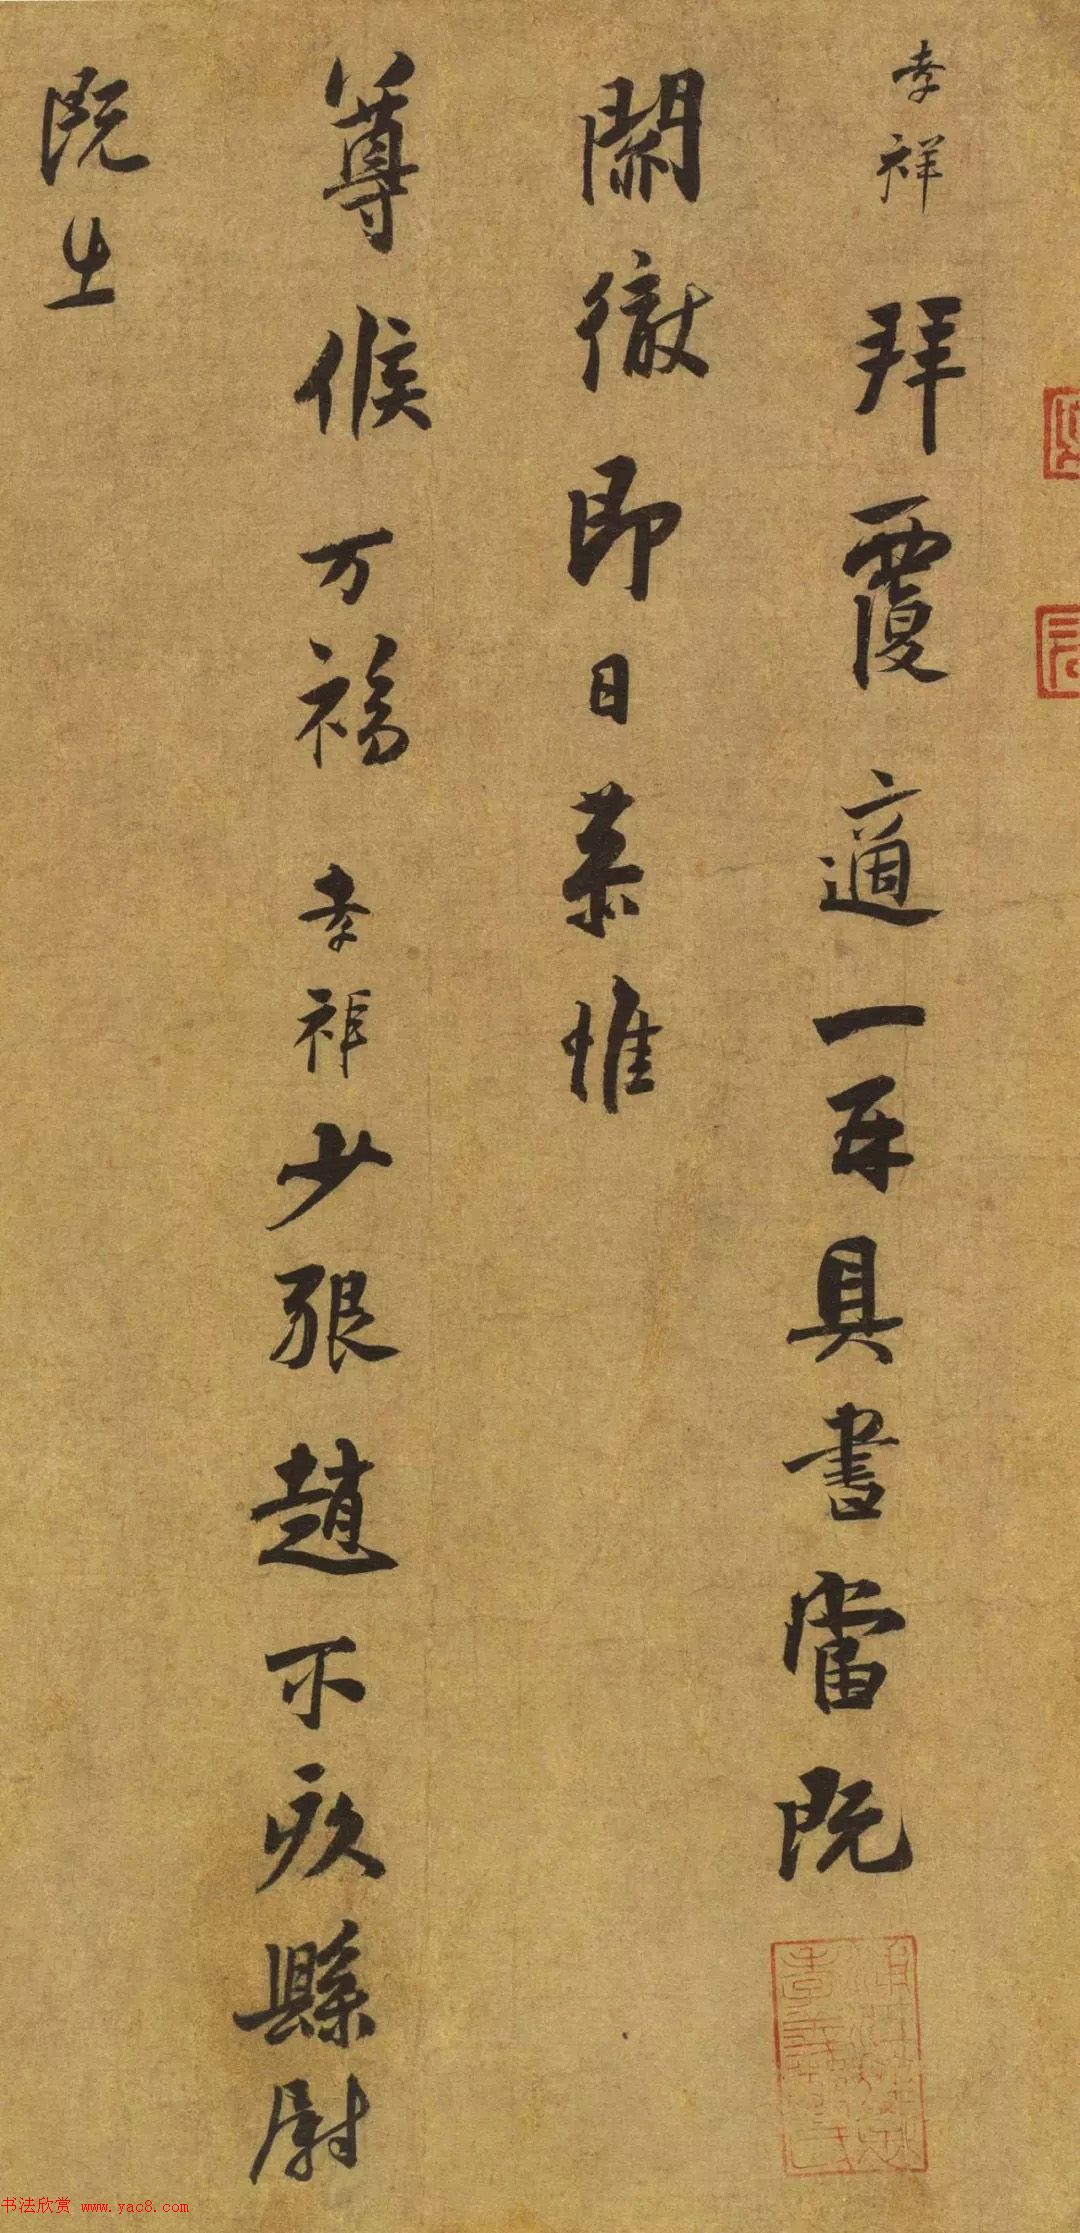 孝祥拜覆適一再具書當既
關徹即日恭惟
尊候万福孝祥少懇趙不疚縣尉
既至
书法欣赏 www.yac8.com